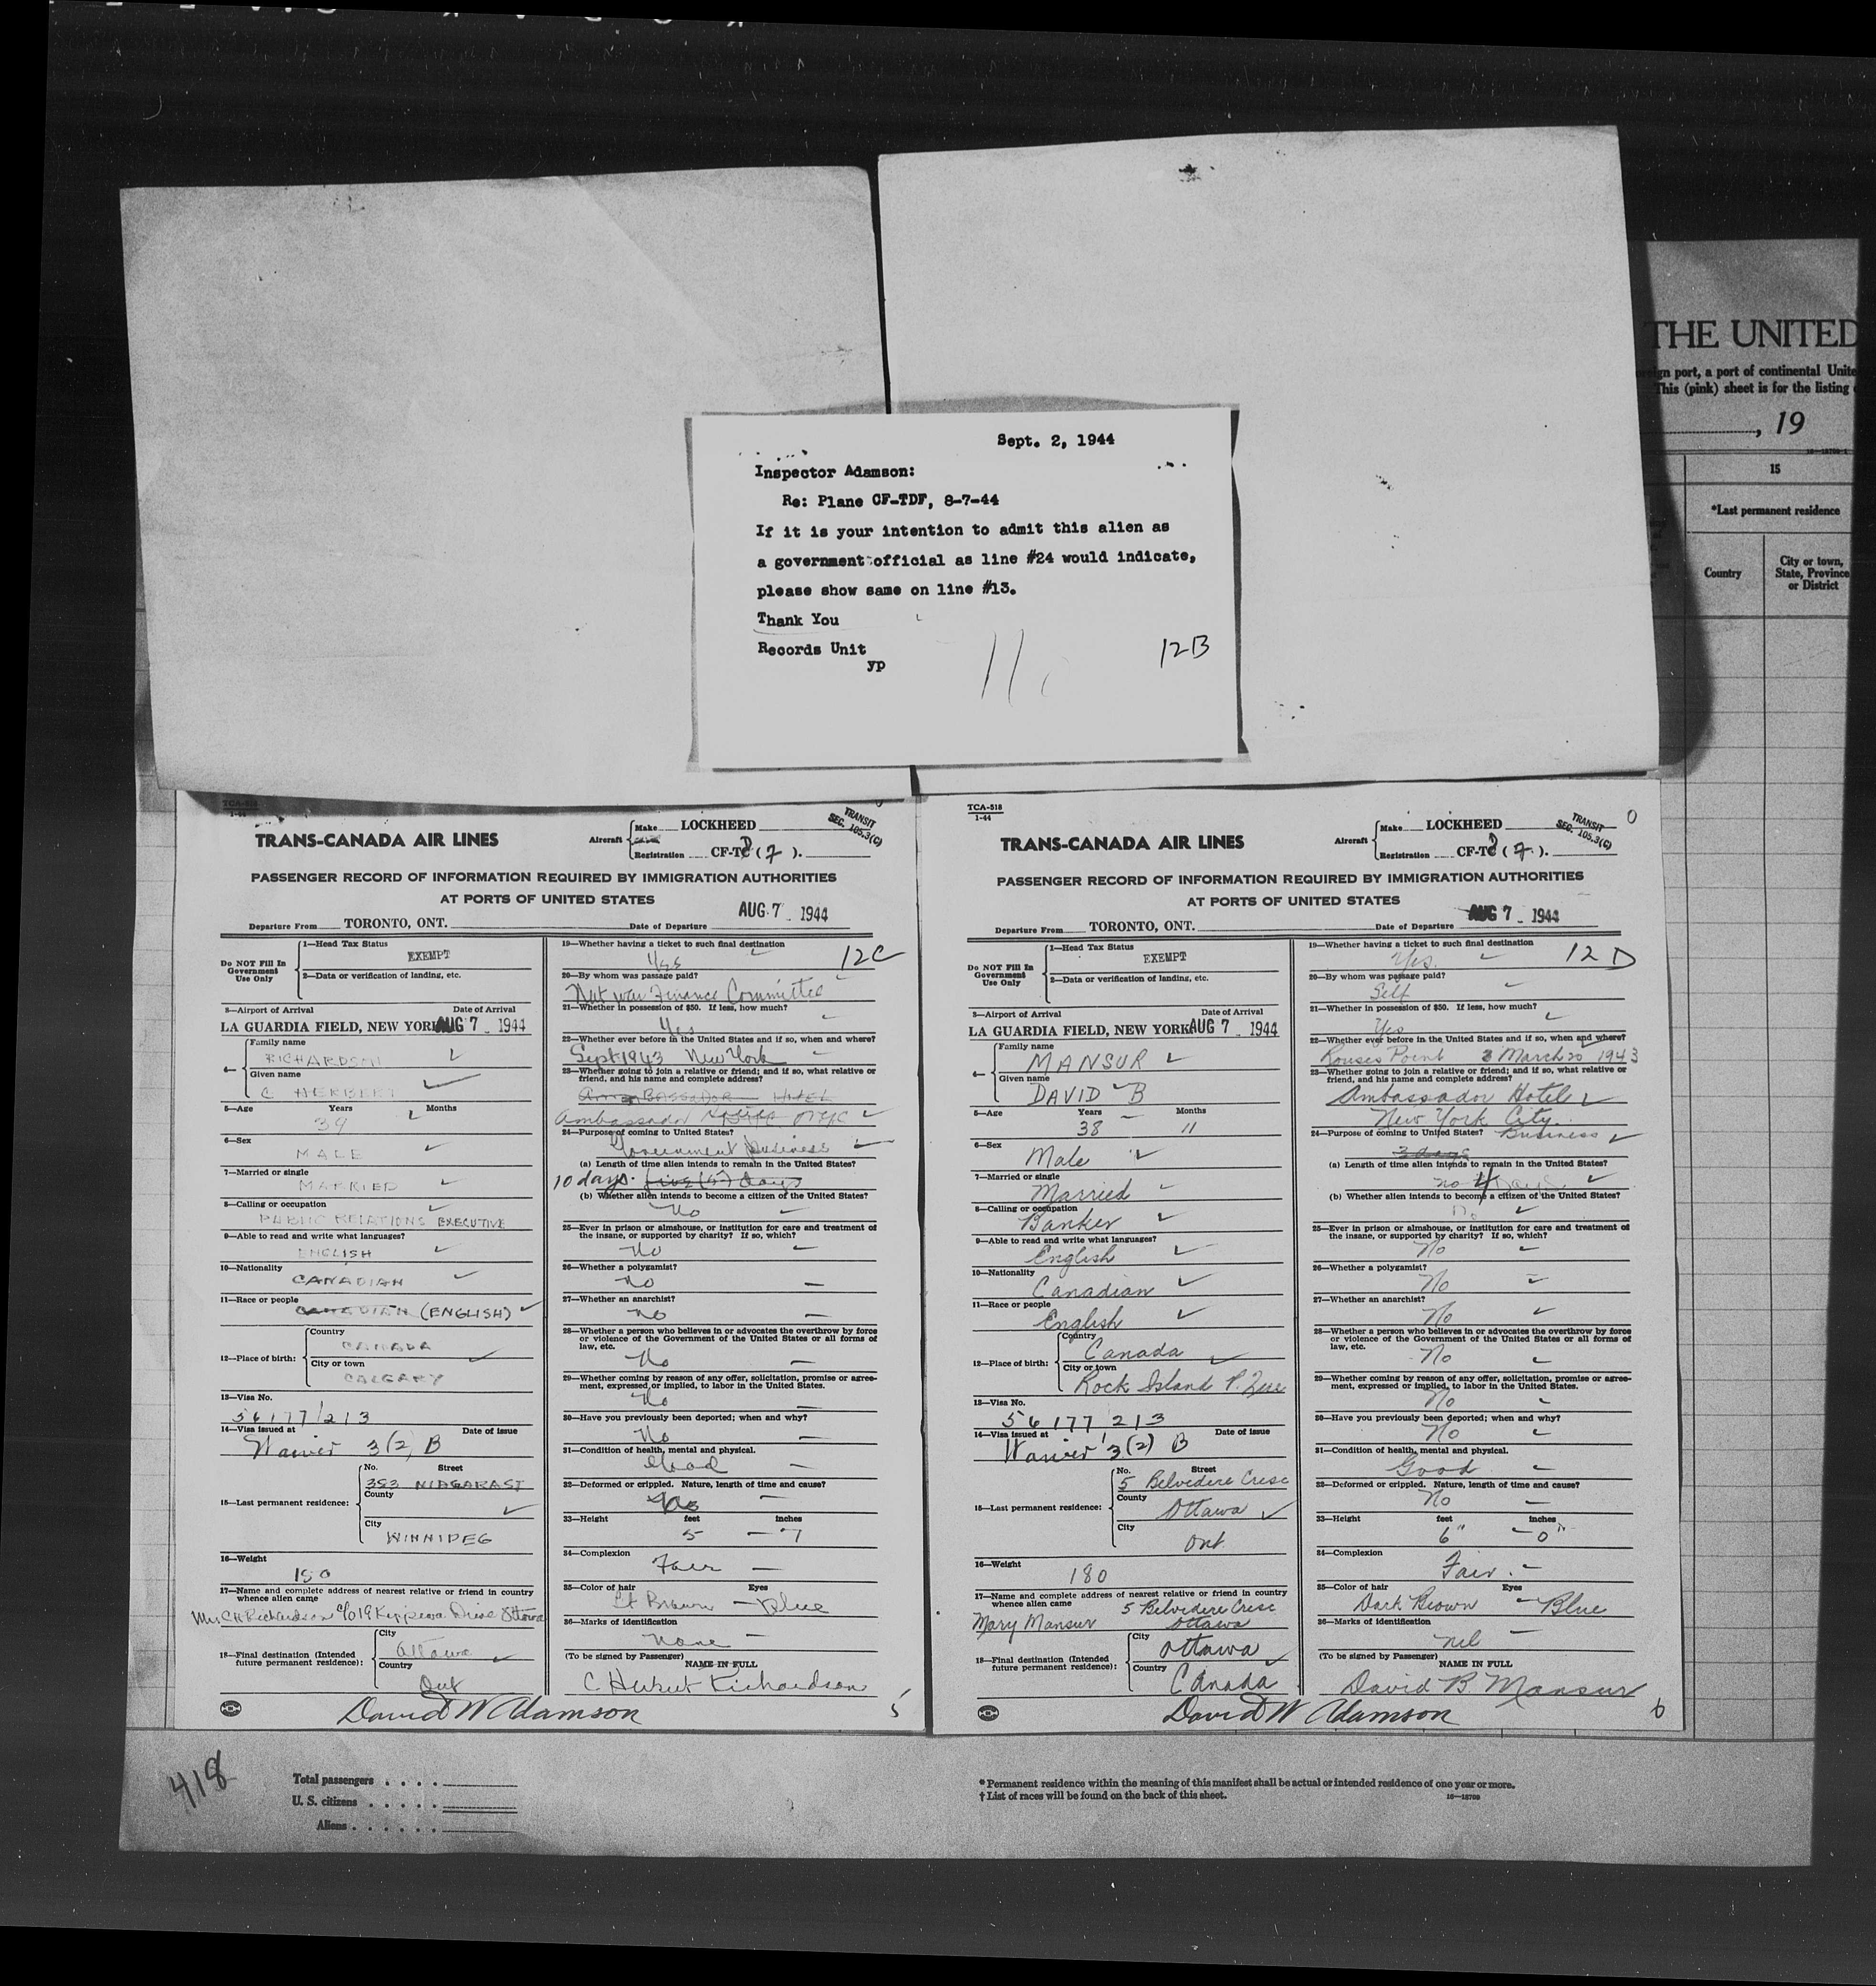 Sept. 2, 1944
Inspector Adamson:
Re: Plane CF-TDF, 8-7-44
If it is your intention to admit this alien as
a government official as line #24 would indicate,
please show same on line #13.
Thank You
Records Unit
yp
12B
THE UNITED
ign port, a port of continental Unite
This (pink) sheet is for the listing
, 19
15
*Last permanent residence
Country
City or town, State, Province or District
TCA-518
1-44
TRANS-CANADA AIR LINES
Aircraft
Make LOCKHEED
Registration CF-TD (7).
TRANSIT
SEC. 105.3(C)
PASSENGER RECORD OF INFORMATION REQUIRED BY IMMIGRATION AUTHORITIES
AT PORTS OF UNITED STATES
Departure From TORONTO, ONT. Date of Departure AUG 7 - 1944
Do NOT Fill In Government Use Only
1—Head Tax Status EXEMPT
2—Data or verification of landing, etc.
3—Airport of Arrival Date of Arrival
LA GUARDIA FIELD, NEW YORK AUG 7 - 1944
4— Family name
RICHARDSON
Given name
C HERBERT
5—Age Years Months
39
6—Sex
MALE
7—Married or single
MARRIED
8—Calling or occupation
PUBLIC RELATIONS EXECUTIVE
9—Able to read and write what languages?
ENGLISH
10—Nationality
CANADIAN
11—Race or people
CANADIAN (ENGLISH)
12—Place of birth:
Country
CANADA
City or town
CALGARY
13—Visa No.
56177/213
14—Visa issued at Date of issue
Waiver 3(2) B
15—Last permanent residence:
No. Street
353 NIAGARA ST
County
City
WINNIPEG
16—Weight
150
17—Name and complete address of nearest relative or friend in country whence alien came
Mrs. C H Richardson c/o 19 Kippewa Drive Ottawa
18—Final destination (Intended future permanent residence):
City
Ottawa
Country
Ont
19—Whether having a ticket to such final destination
Yes
12C
20—By whom was passage paid?
Nat war Finance Committee
21—Whether in possession of $50. If less, how much?
Yes
22—Whether ever before in the United States and if so, when and where?
Sept 1943 New York
23—Whether going to join a relative or friend; and if so, what relative or friend, and his name and complete address?
AMBASSADOR HOTEL
Ambassador NYC
24—Purpose of coming to United States?
Government business
(a) Length of time alien intends to remain in the United States?
10 days. five (5) days
(b) Whether alien intends to become a citizen of the United States?
No
25—Ever in prison or almshouse, or institution for care and treatment of the insane, or supported by charity? If so, which?
No
26—Whether a polygamist?
No
27—Whether an anarchist?
No
28—Whether a person who believes in or advocates the overthrow by force or violence of the Government of the United States or all forms of law, etc.
No
29—Whether coming by reason of any offer, solicitation, promise or agreement, expressed or implied, to labor in the United States.
No
30—Have you previously been deported; when and why?
No
31—Condition of health, mental and physical.
Good
32—Deformed or crippled. Nature, length of time and cause?
No
33—Height feet inches
5 — 7
34—Complexion
Fair
35—Color of hair Eyes
Lt Brown — Blue
36—Marks of identification
None
(To be signed by Passenger)
NAME IN FULL
C Herbert Richardson
David W Adamson
5
TCA-518
1-44
0
TRANS-CANADA AIR LINES
Aircraft
Make LOCKHEED
Registration CF-TD (7).
TRANSIT
SEC. 105.3(C)
PASSENGER RECORD OF INFORMATION REQUIRED BY IMMIGRATION AUTHORITIES
AT PORTS OF UNITED STATES
Departure From TORONTO, ONT. Date of Departure AUG 7 - 1944
Do NOT Fill In Government Use Only
1—Head Tax Status EXEMPT
2—Data or verification of landing, etc.
3—Airport of Arrival Date of Arrival
LA GUARDIA FIELD, NEW YORK AUG 7 - 1944
4— Family name
MANSUR
Given name
DAVID B
5—Age Years Months
38 11
6—Sex
Male
7—Married or single
Married
8—Calling or occupation
Banker
9—Able to read and write what languages?
English
10—Nationality
Canadian
11—Race or people
English
12—Place of birth:
Country
Canada
City or town
Rock Island P. Que
13—Visa No.
56177/213
14—Visa issued at Date of issue
Waiver 3(2) B
15—Last permanent residence:
No. Street
5 Belvedere Cresc
County
Ottawa
City
Ont.
16—Weight
180
17—Name and complete address of nearest relative or friend in country whence alien came
5 Belvedere Cresc
Mary Mansur Ottawa
18—Final destination (Intended future permanent residence):
City
Ottawa
Country
Canada
19—Whether having a ticket to such final destination
Yes
12D
20—By whom was passage paid?
Self
21—Whether in possession of $50. If less, how much?
Yes
22—Whether ever before in the United States and if so, when and where?
Rouses Point March 20 1943
23—Whether going to join a relative or friend; and if so, what relative or friend, and his name and complete address?
Ambassador Hotel
New York City.
24—Purpose of coming to United States? Business
3 days
(a) Length of time alien intends to remain in the United States?
no 4 Days
(b) Whether alien intends to become a citizen of the United States?
No
25—Ever in prison or almshouse, or institution for care and treatment of the insane, or supported by charity? If so, which?
No
26—Whether a polygamist?
No
27—Whether an anarchist?
No
28—Whether a person who believes in or advocates the overthrow by force or violence of the Government of the United States or all forms of law, etc.
No
29—Whether coming by reason of any offer, solicitation, promise or agreement, expressed or implied, to labor in the United States.
No
30—Have you previously been deported; when and why?
No
31—Condition of health, mental and physical.
Good
32—Deformed or crippled. Nature, length of time and cause?
No
33—Height feet inches
6" — 0"
34—Complexion
Fair
35—Color of hair Eyes
Dark Brown — Blue
36—Marks of identification
nil
(To be signed by Passenger)
NAME IN FULL
David B. Mansur
David W Adamson
6
418
Total passengers . . . .
U. S. citizens . . . . .
Aliens . . . . . .
* Permanent residence within the meaning of this manifest shall be actual or intended residence of one year or more.
† List of races will be found on the back of this sheet.